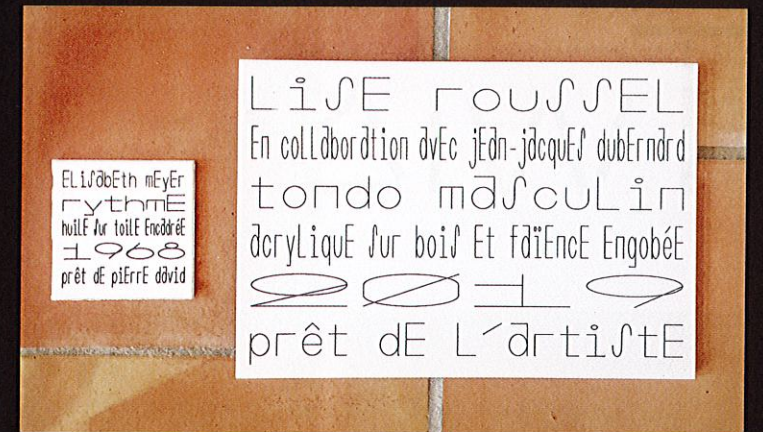 ELiSabEth mEyEr
rythmE
huilE Sur toilE EncadréE
1968
prêt dE piErrE david
LiSE rouSSEL
En coLLaboration avEc jEan-jacquES dubErnard
tondo maScuLin
acryLiquE Sur boiS Et faïEncE EngobéE
2019
prêt dE L'artiStE